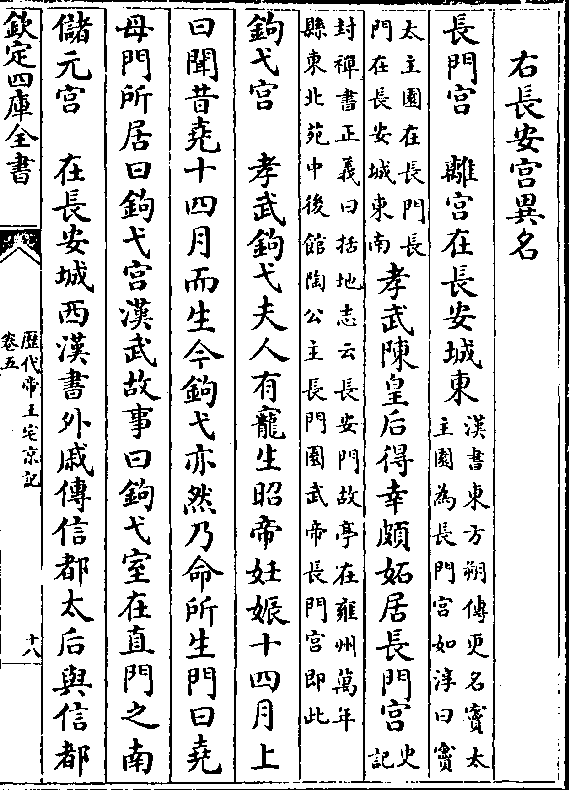 右長安宮異名
長門宮　離宮在長安城東漢書東方朔傳更名竇太
主園為長門宮如淳曰竇
太主園在長門長
門在長安城東南孝武陳皇后得幸頗妬居長門宮史
記
封禪書正義曰括地志云長安門故亭在雍州萬年
縣東北苑中後館陶公主長門園武帝長門宮即此
鉤弋宮　孝武鉤弋夫人有寵生昭帝妊娠十四月上
曰聞昔堯十四月而生今鉤弋亦然乃命所生門曰堯
母門所居曰鉤弋宮漢武故事曰鉤弋室在直門之南
儲元宮　在長安城西漢書外戚傳信都太后與信都
欽定四庫全書
歷代帝王宅京記
卷五
十八